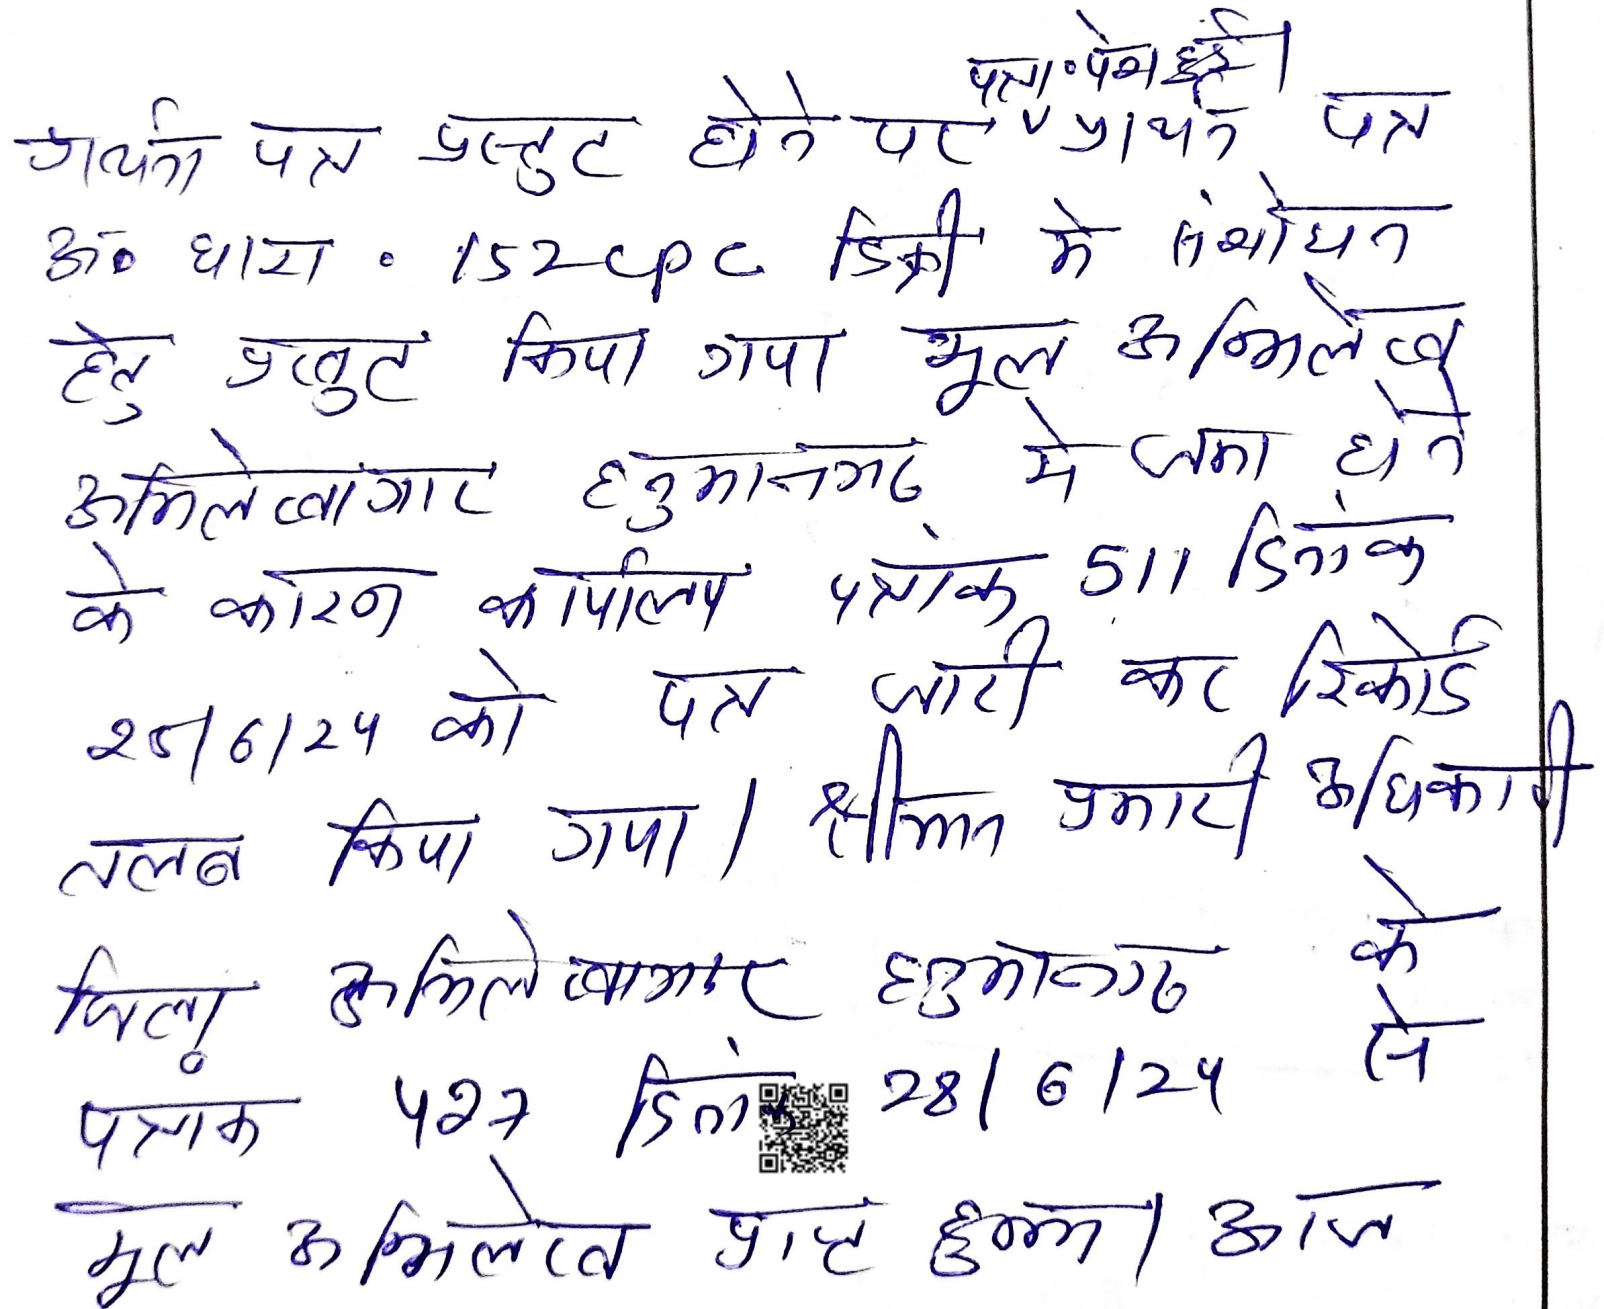 पत्रा॰ पेश हुई।
प्रार्थना पत्र प्रस्तुत होने पर प्रार्थना पत्र
अं॰ धारा ॰ 152 CPC डिक्री मे संशोधन
हेतु प्रस्तुत किया गया मूल अभिलेख
अभिलेखागार हनुमानगढ मे जमा होने
के कारण कार्यालय पत्रांक 511 दिनांक
25/6/24 को पत्र जारी कर रिकोर्ड
तलब किया गया। श्रीमान प्रभारी अधिकारी
जिला अभिलेखागार हनुमानगढ के
पत्रांक 427 दिनांक 28/6/24 से
मूल अभिलेख प्राप्त हुआ। आज